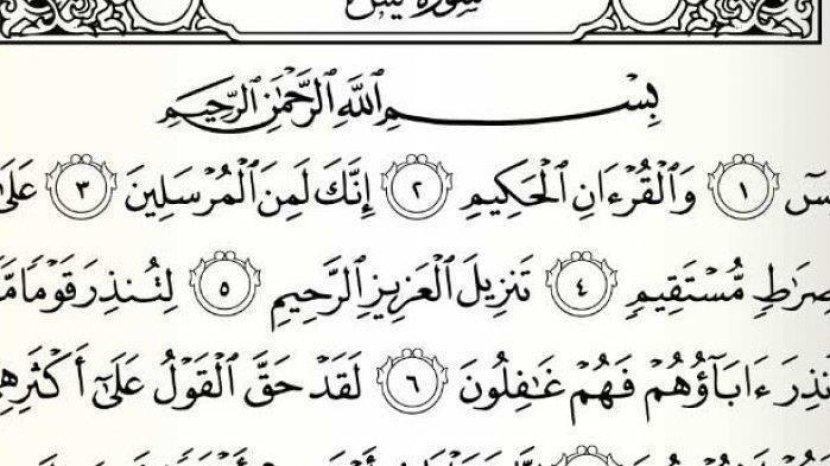 سورة يس
بِسْمِ ٱللَّهِ ٱلرَّحْمَٰنِ ٱلرَّحِيمِ
يسٓ ١ وَٱلْقُرْءَانِ ٱلْحَكِيمِ ٢ إِنَّكَ لَمِنَ ٱلْمُرْسَلِينَ ٣ عَلَىٰ
صِرَٰطٍ مُّسْتَقِيمٍ ٤ تَنزِيلَ ٱلْعَزِيزِ ٱلرَّحِيمِ ٥ لِتُنذِرَ قَوْمًا مَّآ
أُنذِرَ ءَابَآؤُهُمْ فَهُمْ غَٰفِلُونَ ٦ لَقَدْ حَقَّ ٱلْقَوْلُ عَلَىٰٓ أَكْثَرِهِمْ